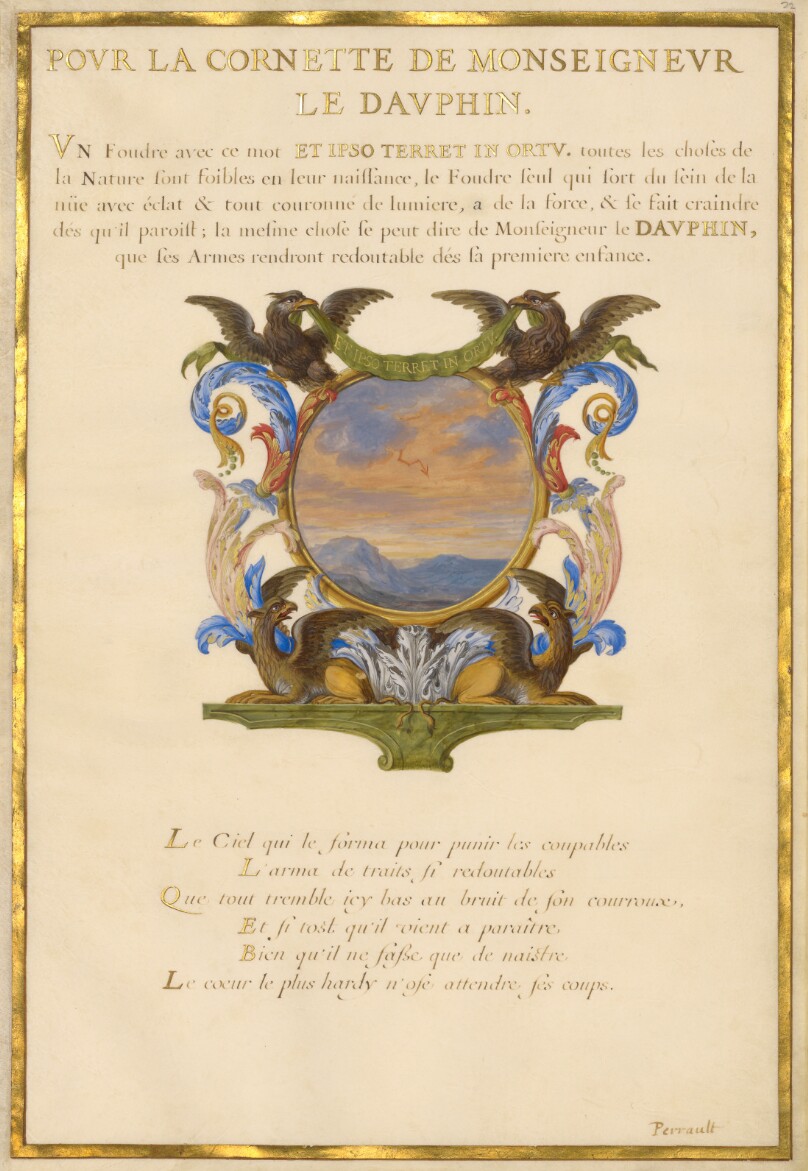 22
POVR LA CORNETTE DE MONSEIGNEVR
LE DAVPHIN.
VN Foudre avec ce mot ET IPSO TERRET IN ORTV. toutes les choſes de
la Nature ſont foibles en leur naiſſance, le Foudre ſeul qui ſort du ſein de la
nüe avec éclat & tout couronné de lumiere, a de la force, & ſe fait craindre
dés qu'il paroiſt; la meſme choſe ſe peut dire de Monſeigneur le DAVPHIN,
que ſes Armes rendront redoutable dés ſa premiere enfance.
ET IPSO TERRET IN ORTV
Le Ciel qui le forma pour punir les coupables
L'arma de traits ſi redoutables
Que tout tremble icy bas au bruit de ſon courroux,
Et ſi toſt qu'il vient a paraître,
Bien qu'il ne faſſe que de naiſtre
Le coeur le plus hardy n'oſe attendre ſes coups.
Perrault